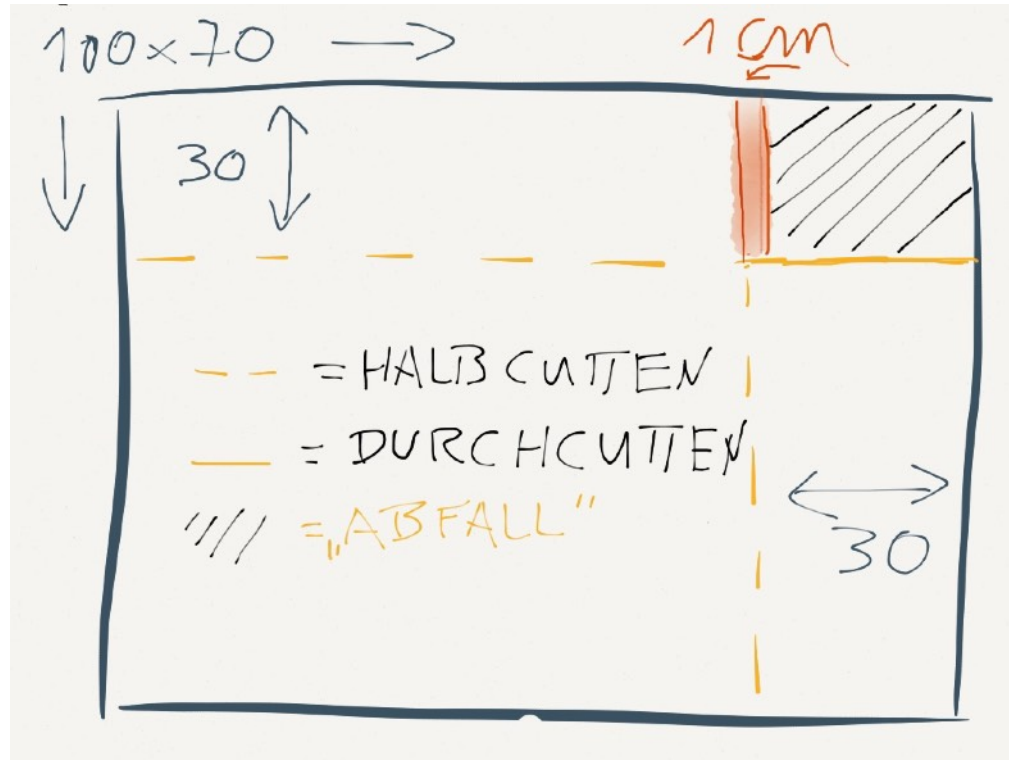 100x70
1 cm
30
= HALBCUTTEN
= DURCHCUTTEN
= „ABFALL"
30